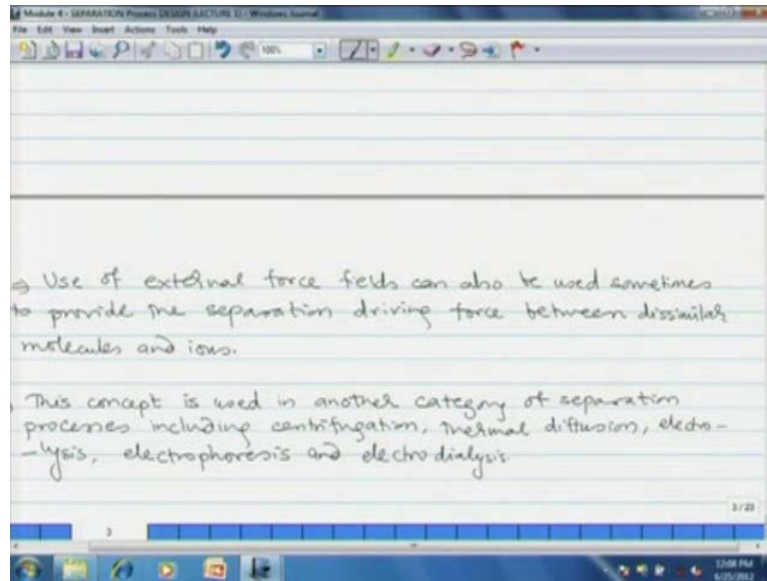 Module 4 - SEPARATION Process DESIGN (LECTURE 1) - Windows Journal
File Edit View Insert Actions Tools Help
100%
⇒ Use of external force fields can also be used sometimes
to provide the separation driving force between dissimilar
molecules and ions.
This concept is used in another category of separation
processes including centrifugation, thermal diffusion, electro-
-lysis, electrophoresis and electrodialysis.
3/23
3
12:08 PM
6/25/2012